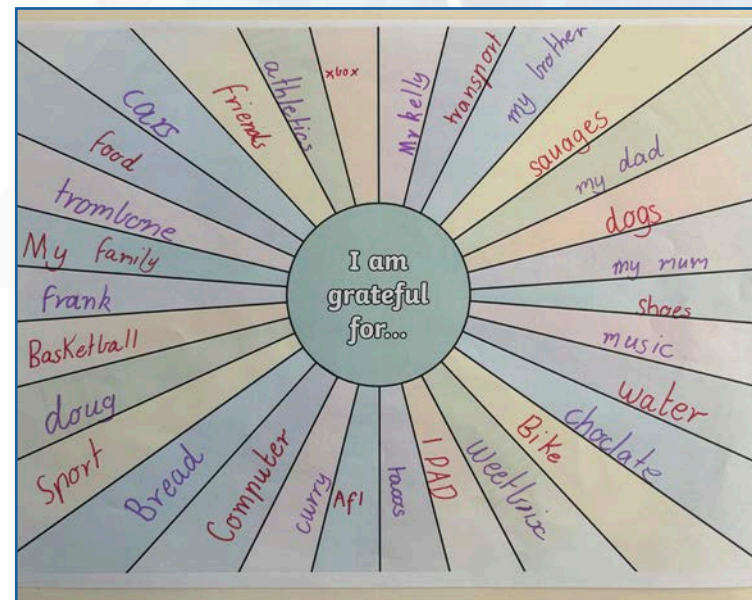 I am
grateful
for...
xbox
Mr kelly
transport
my brother
sauages
my dad
dogs
my mum
shoes
music
water
choclate
Bike
weetbix
I PAD
Afl
curry
Computer
Bread
Sport
doug
Basketball
frank
My family
trombone
food
cars
friends
athletics